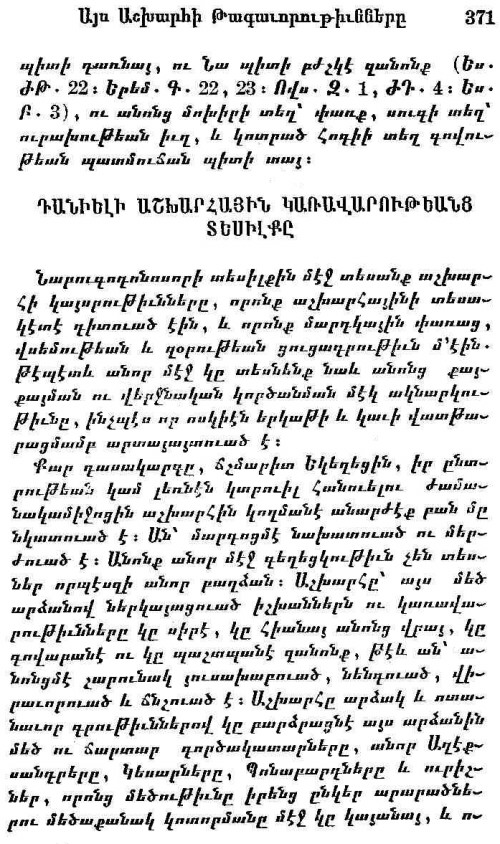 Այս Աշխարհի Թագաւորութիւնները 371
պիտի դառնայ, ու Նա պիտի բժշկէ զանոնք (Ես.
ԺԹ. 22: Երեմ. Գ. 22, 23: Ովս. Զ. 1, ԺԴ. 4: Ես.
Բ. 3), ու անոնց մոխիրի տեղ՝ փառք, սուգի տեղ՝
ուրախութեան իւղ, և կոտրած Հոգիի տեղ գովու-
թեան պատմուճան պիտի տայ:
ԴԱՆԻԵԼԻ ԱՇԽԱՐՀԱՅԻՆ ԿԱՌԱՎԱՐՈՒԹԵԱՆՑ
ՏԵՍԻԼՔԸ
Նաբուգոդոնոսորի տեսիլքին մէջ տեսանք աշխար-
հի կայսրութիւնները, որոնք աշխարհայինի տեսա-
կէտէ դիտուած էին, և որոնք մարդկային փառաց,
վսեմութեան և զօրութեան ցուցադրութիւն մ'էին.
Թէպէտև անոր մէջ կը տեսնենք նաև անոնց քայ-
քայման ու վերջնական կործանման մէկ ակնարկու-
թիւնը, ինչպէս որ ոսկիէն երկաթի և կաւի վատթա-
րացմամբ արտայայտուած է:
Քար դասակարգը, ճշմարիտ Եկեղեցին, իր ընտ-
րութեան կամ լեռնէն կտրուիլ հանուելու ժամա-
նակամիջոցին աշխարհին կողմանէ անարժէք բան մը
նկատուած է: Ան՝ մարդոցմէ նախատուած ու մեր-
ժուած է: Անոնք անոր մէջ գեղեցկութիւն չեն տես-
ներ որպէսզի անոր բաղձան: Աշխարհը՝ այս մեծ
արձանով ներկայացուած իշխաններն ու կառավա-
րութիւնները կը սիրէ, կը հիանայ անոնց վրայ, կը
գովաբանէ ու կը պաշտպանէ զանոնք, թէև ան՝ ա-
նոնցմէ շարունակ յուսախաբուած, նենգուած, վի-
րաւորուած և ճնշուած է: Աշխարհը արձակ և ոտա-
նաւոր գրութիւններով կը բարձրացնէ այս արձանին
մեծ ու ճարտար գործակատարները, անոր Աղէք-
սանդրերը, Կեսարները, Պոնաբարդները և ուրիշ-
ներ, որոնց մեծութիւնը իրենց ընկեր արարածնե-
րու մեծաքանակ կոտորմանը մէջ կը կայանայ, և ո-